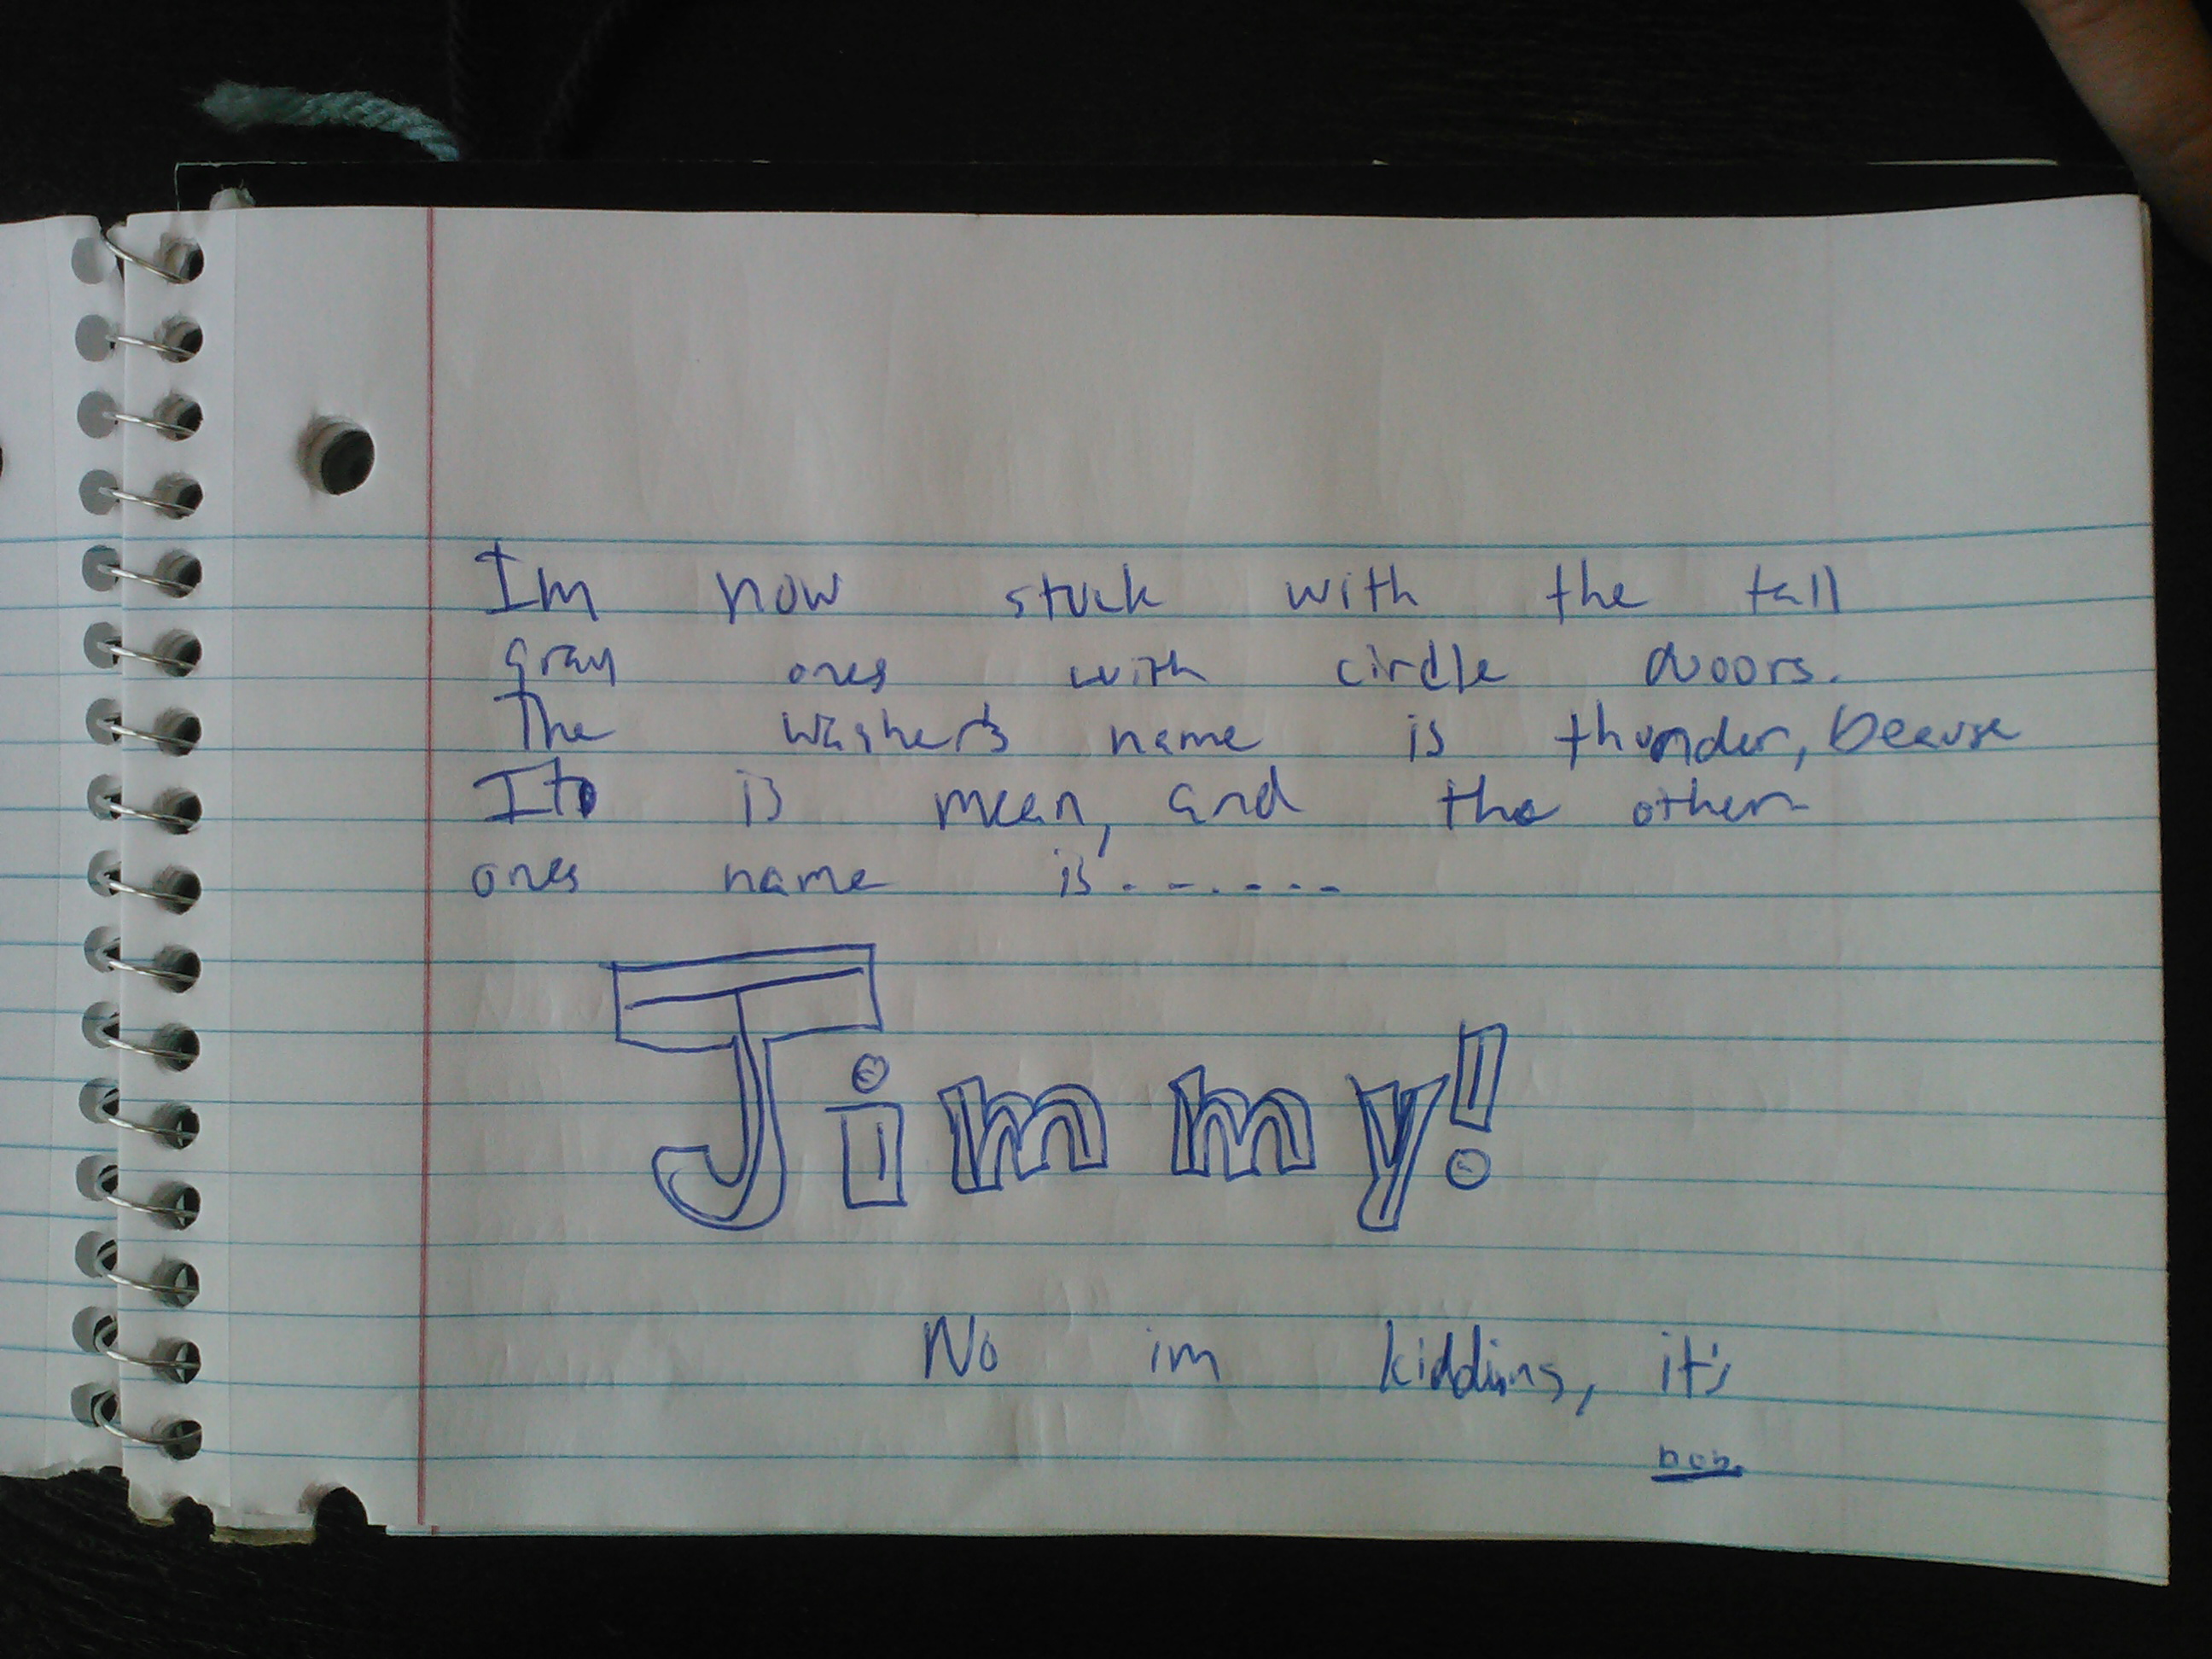 Im now stuck with the tall
gray ones with circle doors.
The washer's name is thunder, beause
It is mean, and the other
ones name is.......
Jimmy!
No im kidding, it's
bob.